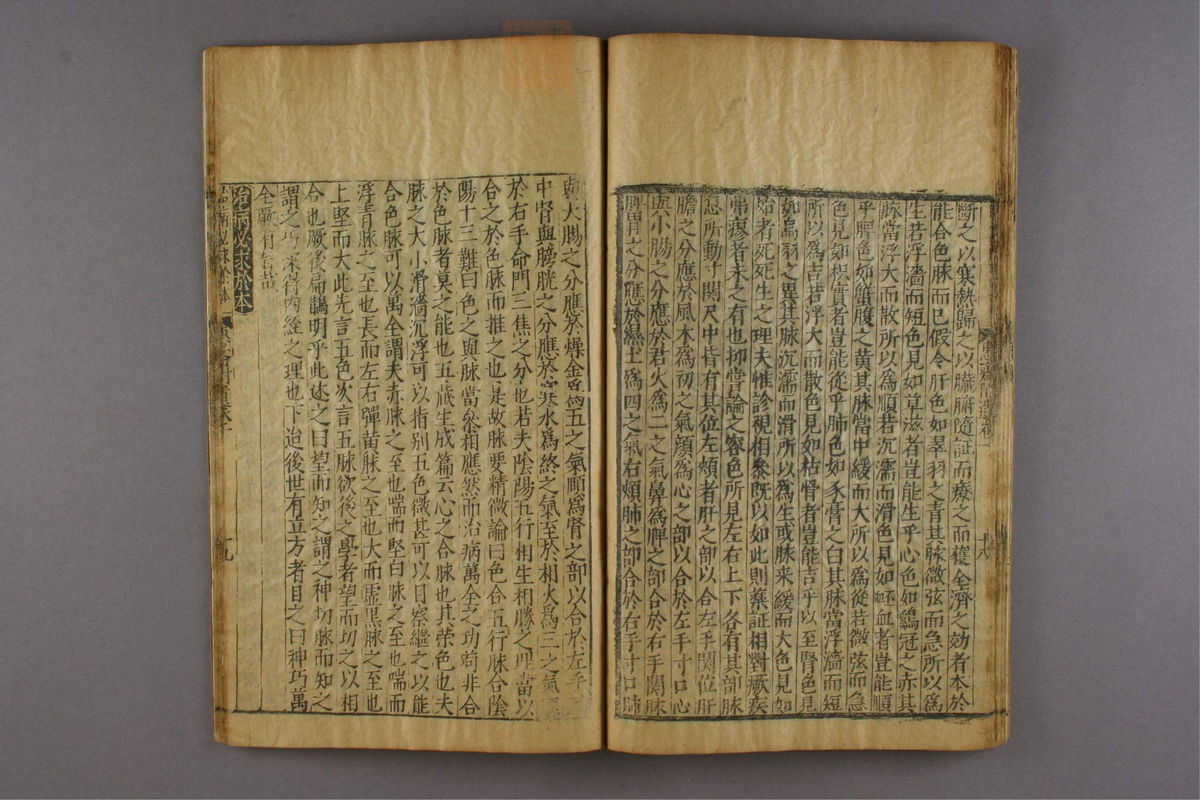 斷之以寒熱歸之以臟腑隨証而療之而獲全濟之効者本於
能合色脉而已假令肝色如翠羽之青其脉微弦而急所以為
生若浮濇而短色見如草滋者豈能生乎心色如鷄冠之赤其
脉當浮大而散所以為順若沉濡而滑色見如衃血者豈能順
乎脾色如蟹腹之黄其脉當中緩而大所以為從若微弦而急
色見如枳實者豈能從乎肺色如豕膏之白其脉當浮濇而短
所以為吉若浮大而散色見如枯骨者豈能吉乎以至腎色見
如烏羽之異其脉沉濡而滑所以為生或脉来緩而大色見如
始者死死生之理夫惟診視相叅既以如此則藥証相對厥疾
弗瘳者未之有也抑嘗論之容色所見左右上下各有其部脉
息所動寸関尺中皆有其位左頬者肝之部以合左手関位肝
膽之分應於風木為初之氣顔為心之部以合於左手寸口心
與小腸之分應於君火為二之氣鼻為脾之部合於右手関脉
脾胃之分應於濕土為四之氣右頬肺之部合於右手寸口肺
與大腸之分應於燥金為五之氣頤為腎之部以合於左手
中腎與膀胱之分應於寒水為終之氣至於相火為三之氣
於右手命門三焦之分也若夫陰陽五行相生相勝之理當以
合之於色脉而推之也是故脉要精微論曰色合五行脉合陰
陽十三難曰色之與脉當叅相應然而治病萬全之功苟非合
於色脉者莫之能也五藏生成篇云心之合脉也其荣色也夫
脉之大小滑濇沉浮可以指别五色微甚可以目察繼之以能
合色脉可以萬全謂夫赤脉之至也喘而堅白脉之至也喘而
浮青脉之至也長而左右彈黄脉之至也大而虚黒脉之至也
上堅而大此先言五色次言五脉欲後之學者望而切之以相
合也厥後扁鵲明乎此述之曰望而知之謂之神切脉而知之
謂之巧深得内經之理也下迨後世有立方者目之曰神巧萬
全厥有旨哉
治病必求於本